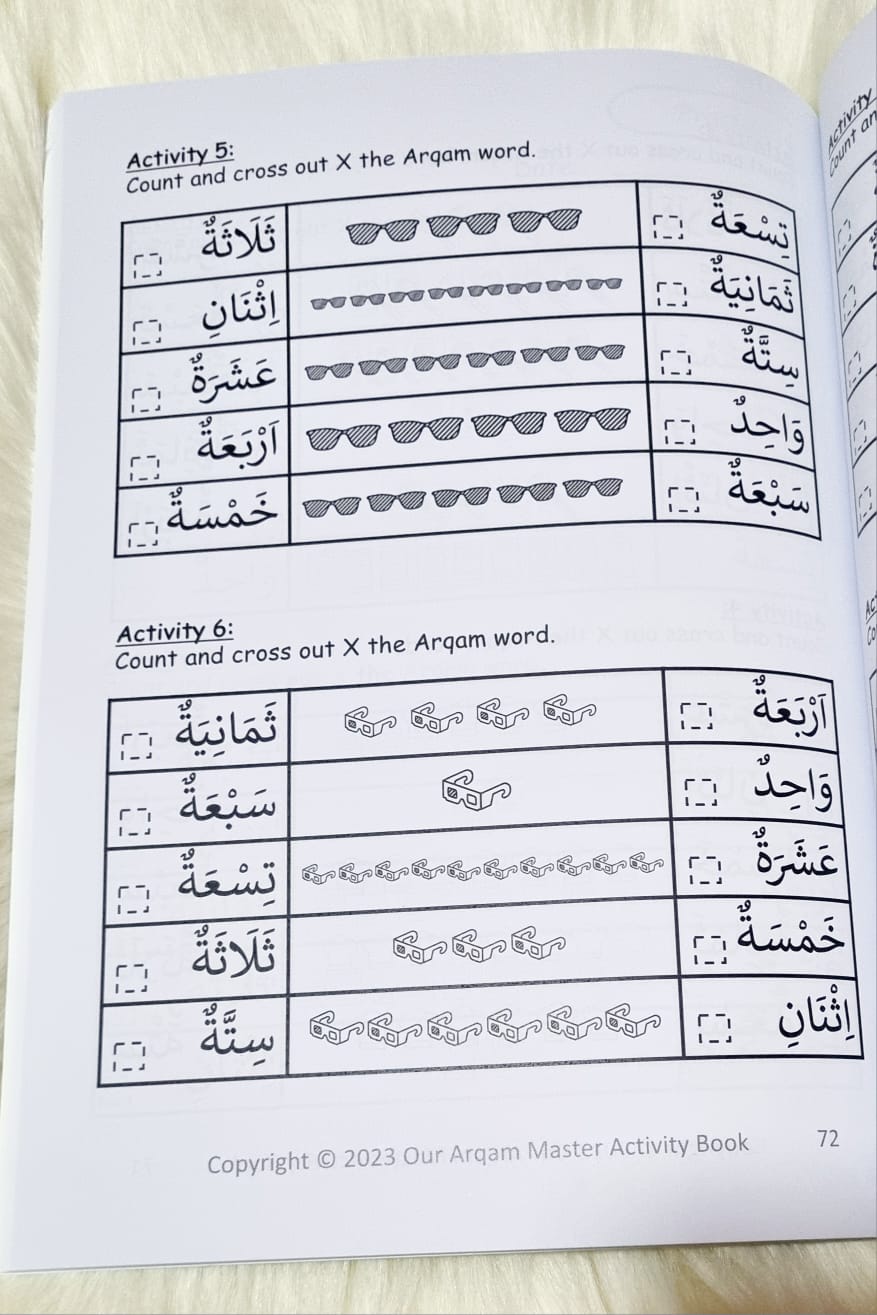 Activity 5:
Count and cross out X the Arqam word.
ثَلَاثَةٌ تِسْعَةٌ
اِثْنَانِ ثَمَانِيَةٌ
عَشَرَةٌ سِتَّةٌ
اَرْبَعَةٌ وَاحِدٌ
خَمْسَةٌ سَبْعَةٌ
Activity 6:
Count and cross out X the Arqam word.
ثَمَانِيَةٌ اَرْبَعَةٌ
سَبْعَةٌ وَاحِدٌ
تِسْعَةٌ عَشَرَةٌ
ثَلَاثَةٌ خَمْسَةٌ
سِتَّةٌ اِثْنَانِ
Copyright © 2023 Our Arqam Master Activity Book 72
Activity
Count an